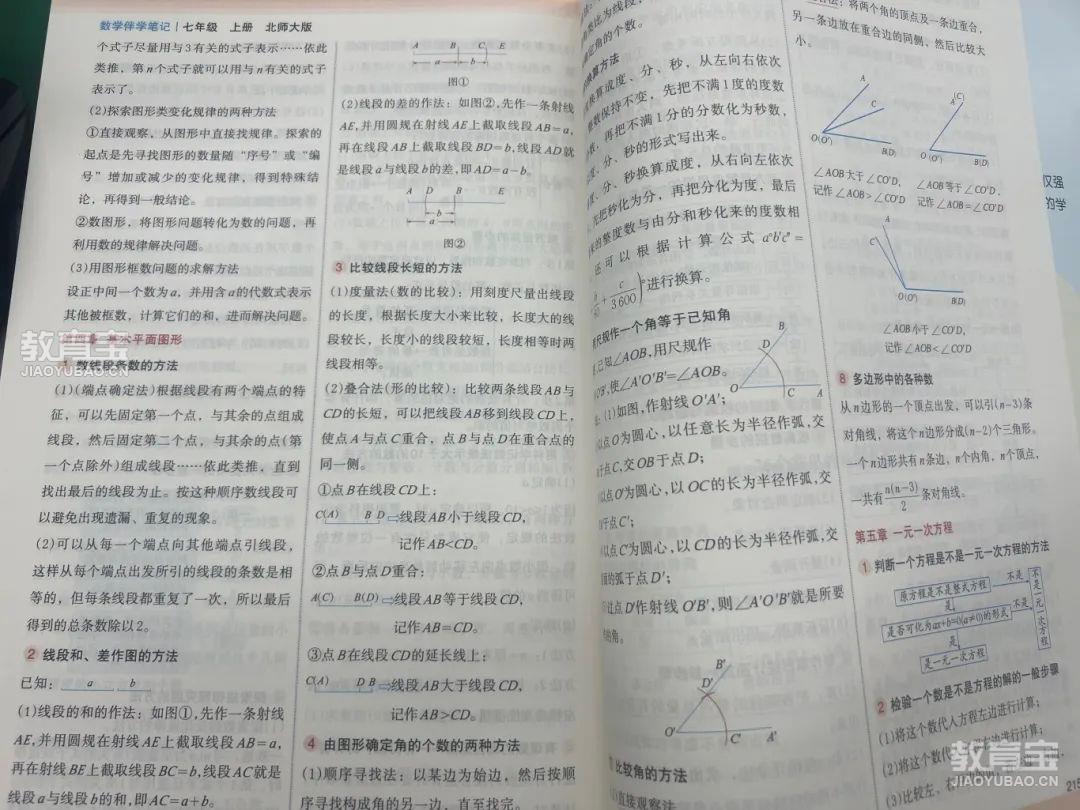 数学伴学笔记 七年级 上册 北师大版
个式子尽量用与3有关的式子表示……依此
类推，第n个式子就可以用与n有关的式子
表示了。
(2)探索图形类变化规律的两种方法
①直接观察，从图形中直接找规律。探索的
起点是先寻找图形的数量随“序号”或“编
号”增加或减少的变化规律，得到特殊结
论，再得到一般结论。
②数图形，将图形问题转化为数的问题，再
利用数的规律解决问题。
(3)用图形框数问题的求解方法
设正中间一个数为a，并用含a的代数式表示
其他被框数，计算它们的和、进而解决问题。
第四章 基本平面图形
数线段条数的方法
(1)(端点确定法)根据线段有两个端点的特
征，可以先固定第一个点，与其余的点组成
线段，然后固定第二个点，与其余的点(第
一个点除外)组成线段……依此类推，直到
找出最后的线段为止。按这种顺序数线段可
以避免出现遗漏、重复的现象。
(2)可以从每一个端点向其他端点引线段，
这样从每个端点出发所引的线段的条数是相
等的，但每条线段都重复了一次，所以最后
得到的总条数除以2。
2 线段和、差作图的方法
已知： a b
(1)线段的和的作法：如图①，先作一条射线
AE,并用圆规在射线AE上截取线段AB=a，
再在射线BE上截取线段BC=b,线段AC就是
线段a与线段b的和,即AC=a+b。
A B C E
a b
图①
(2)线段的差的作法：如图②,先作一条射线
AE,并用圆规在射线AE上截取线段AB=a，
再在线段AB上截取线段BD=b,线段AD就
是线段a与线段b的差,即AD=a-b。
A D B E
b
a
图②
3 比较线段长短的方法
(1)度量法(数的比较)：用刻度尺量出线段
的长度，根据长度大小来比较，长度大的线
段较长，长度小的线段较短，长度相等时两
线段相等。
(2)叠合法(形的比较)：比较两条线段AB与
CD的长短，可以把线段AB移到线段CD上，
使点A与点C重合，点B与点D在重合点的
同一侧。
①点B在线段CD上：
C(A) B D⇒线段AB小于线段CD，
记作AB<CD。
②点B与点D重合：
A(C) B(D)⇒线段AB等于线段CD，
记作AB=CD。
③点B在线段CD的延长线上：
C(A) D B⇒线段AB大于线段CD，
记作AB>CD。
4 由图形确定角的个数的两种方法
(1)顺序寻找法：以某边为始边，然后按顺
序寻找构成角的另一边，直至找完。
类比为线段，
确定角的个数。
换算方法
换算成度、分、秒，从左向右依次
整数保持不变，先把不满1度的度数
，再把不满1分的分数化为秒数，
度、分、秒的形式写出来。
度、分、秒换算成度，从右向左依次
先把秒化为分，再把分化为度，最后
来的整度数与由分和秒化来的度数相
还可以根据计算公式a°b′c″=
b/60+c/3600)°进行换算。
尺规作一个角等于已知角
已知∠AOB,用尺规作
O'B',使∠A'O'B'=∠AOB。
B
D
O C A
：(1)如图,作射线O'A'；
以点O为圆心,以任意长为半径作弧,交
于点C,交OB于点D；
以点O'为圆心,以OC的长为半径作弧,交
于点C'；
以点C'为圆心,以CD的长为半径作弧,交
的弧于点D'；
过点D'作射线O'B',则∠A'O'B'就是所要
的角。
B'
D'
O' C' A'
比较角的方法
直接观察法
：将两个角的顶点及一条边重合，
另一条边放在重合边的同侧，然后比较大
小。
A
C
O(O') B(D)
(C)
A
O(O') B(D)
∠AOB大于∠CO'D,
记作∠AOB>∠CO'D
∠AOB等于∠CO'D,
记作∠AOB=∠CO'D
A
C
O(O') B(D)
∠AOB小于∠CO'D,
记作∠AOB<∠CO'D
8 多边形中的各种数
从n边形的一个顶点出发，可以引(n-3)条
对角线，将这个n边形分成(n-2)个三角形。
一个n边形共有n条边，n个内角，n个顶点，
一共有n(n-3)/2条对角线。
第五章 一元一次方程
1 判断一个方程是不是一元一次方程的方法
原方程是不是整式方程 不是
是
是否可化为ax+b=0(a≠0)的形式 不是
是
是一元一次方程
不是一元一次方程
2 检验一个数是不是方程的解的一般步骤
(1)将这个数代入方程左边进行计算；
(2)将这个数代入方程右边进行计算；
(3)比较左、右
215
仅强
的学
教育宝
JIAOYUBAO.CN
教育宝
JIAOYUBAO.CN